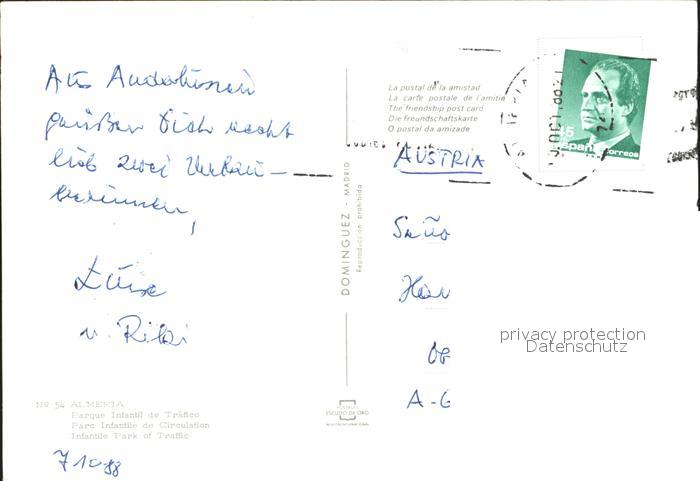 Aus Andalusien
grüßen Dich recht
lieb zwei Urlau-
berinnen,
Luise
u. Riki
Nº 54 ALMERIA
Parque Infantil de Tráfico
Parc Infantile de Circulation
Infantile Park of Traffic
7 10 88
DOMINGUEZ - MADRID
Reproducción prohibida
POSTALES
ESCUDO DE ORO
La postal de la amistad
La carte postale de l'amitié
The friendship post card
Die freundschaftskarte
O postal da amizade
45
España correos
AUSTRIA
A-6
privacy protection
Datenschutz